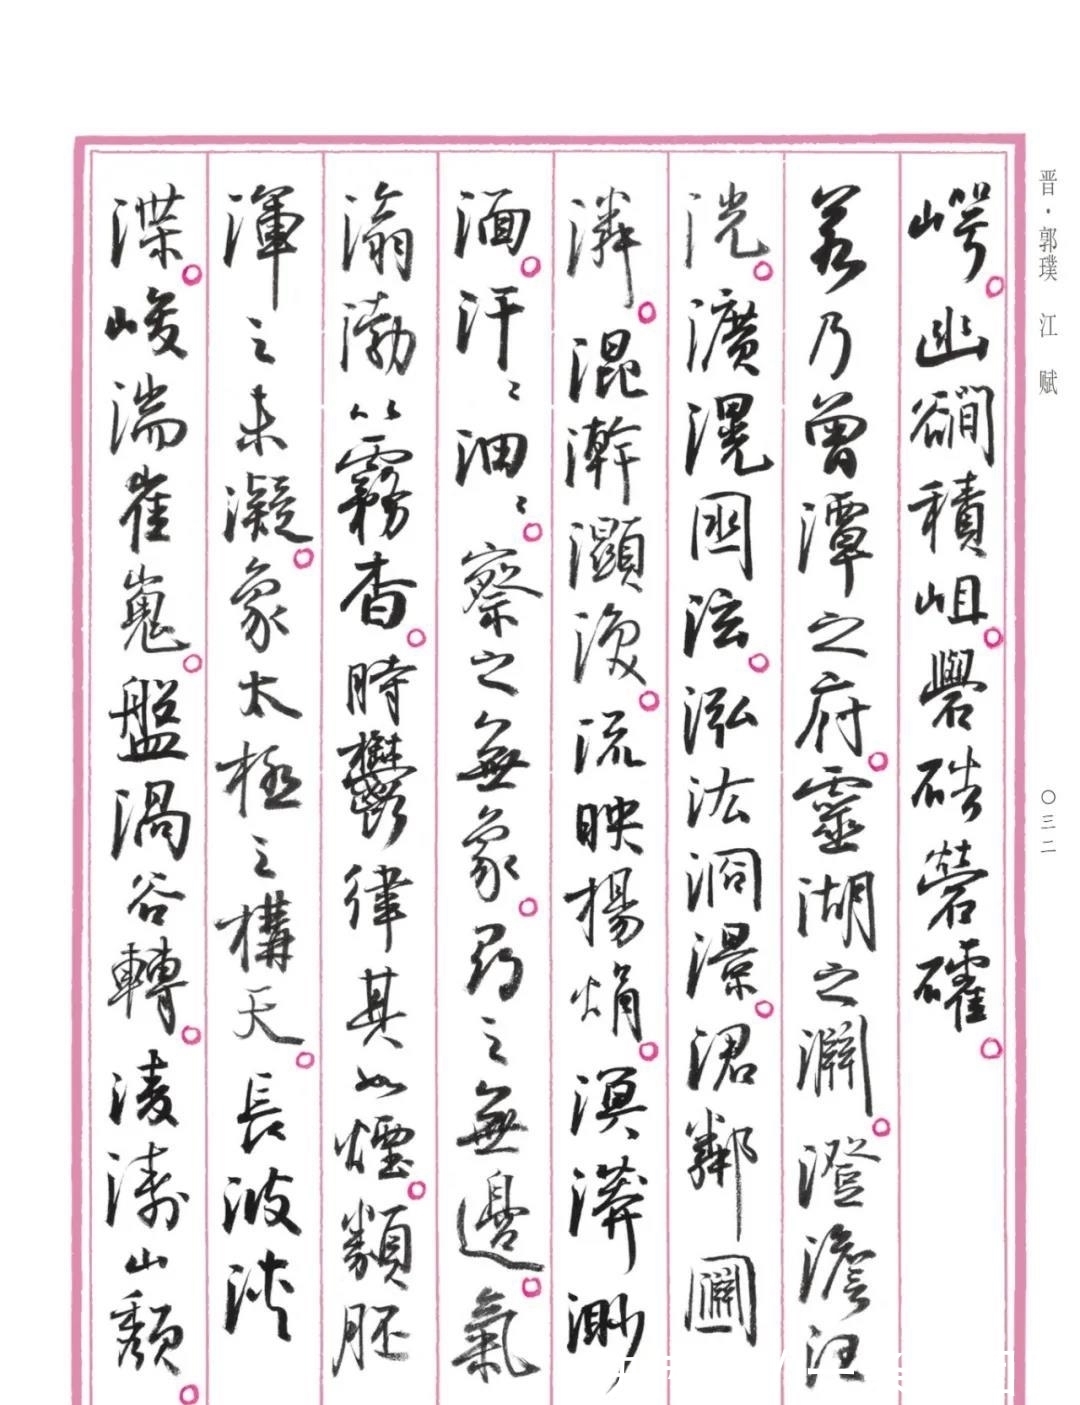 崿。幽積岨。礐硞礭。
若乃曾潭之府。靈湖之淵。澄澹汪
洸。瀇滉囦泫。泓汯浻澋。涒鄰㘤
潾。混澣灝渙。流映揚焆。溟漭渺
湎。汗〻沺〻。察之無象。尋之無邊。氣
滃渤以霧杳。時鬱律其如煙。類胚
渾之未凝。象太極之構天。長波浹
渫。峻湍崔嵬。盤渦谷轉。淩濤山頹。
晋·郭璞 江 赋
〇三二